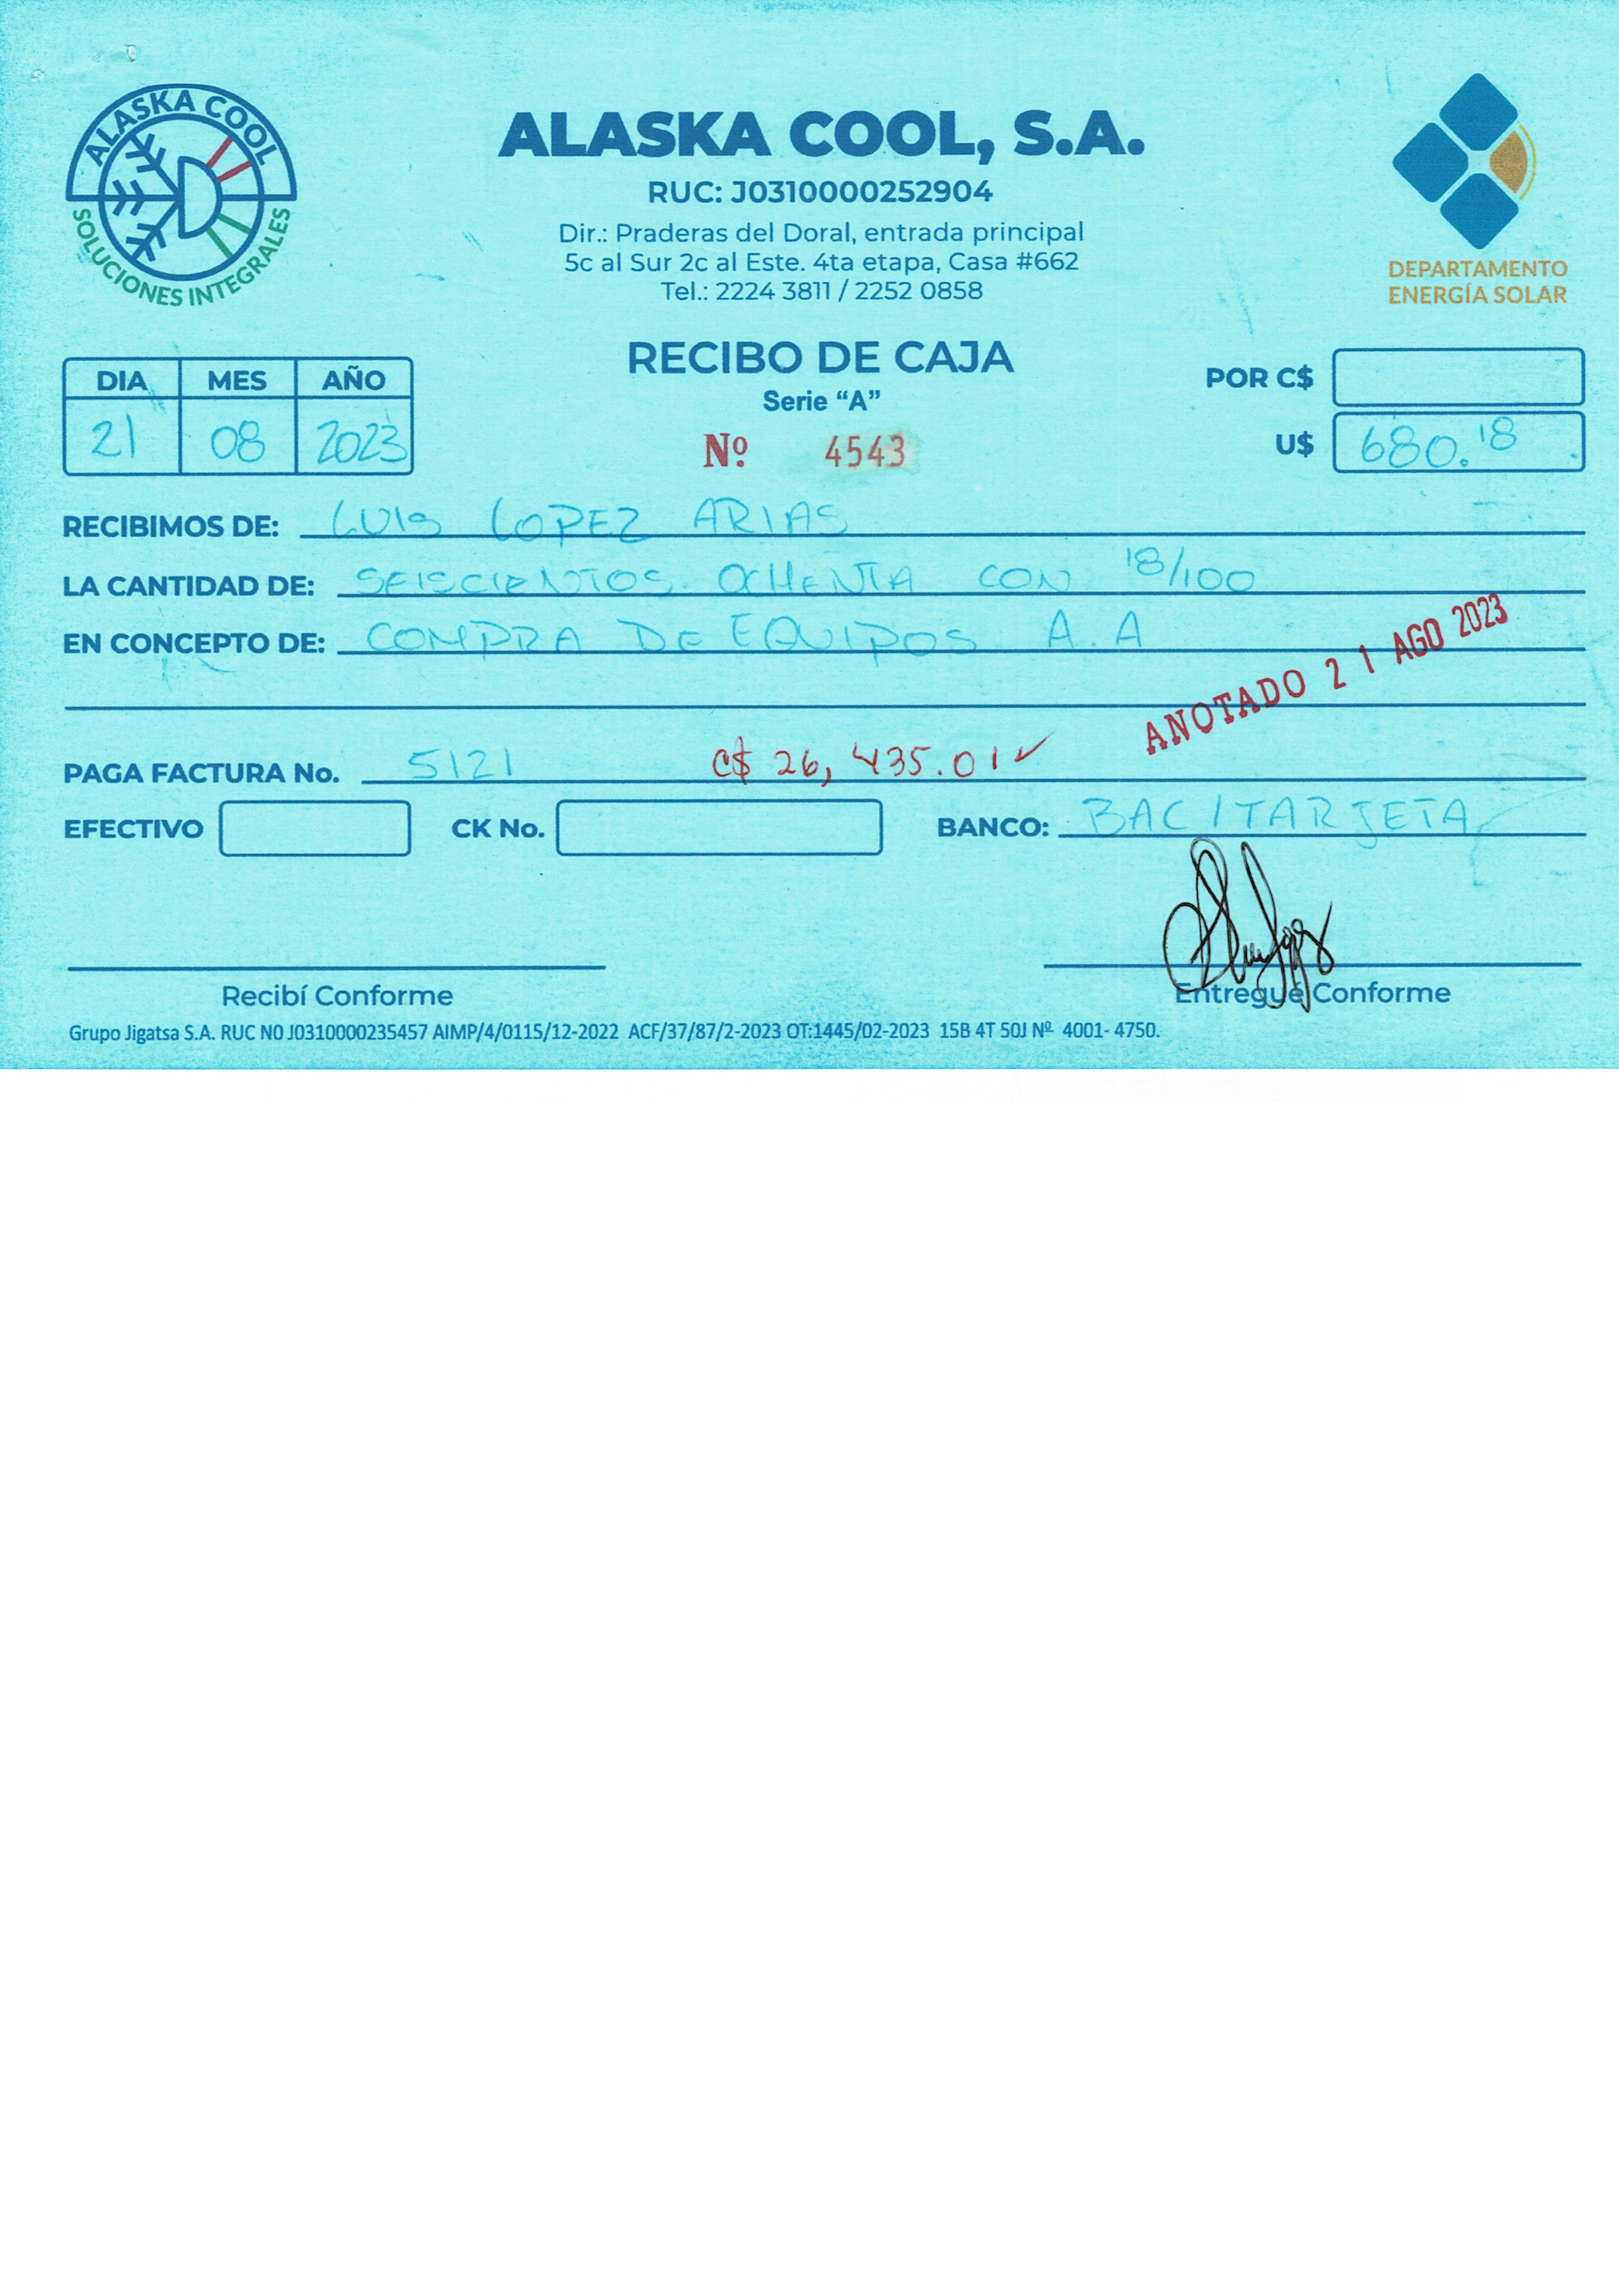 ALASKA COOL
SOLUCIONES INTEGRALES
ALASKA COOL, S.A.
RUC: J0310000252904
Dir.: Praderas del Doral, entrada principal
5c al Sur 2c al Este. 4ta etapa, Casa #662
Tel.: 2224 3811 / 2252 0858
DEPARTAMENTO
ENERGÍA SOLAR
RECIBO DE CAJA
Serie “A”
Nº 4543
DIA MES AÑO
21 08 2023
POR C$
U$ 680.18
RECIBIMOS DE: LUIS LOPEZ ARIAS
LA CANTIDAD DE: SEISCIENTOS OCHENTA CON 18/100
EN CONCEPTO DE: COMPRA DE EQUIPOS A.A
ANOTADO 21 AGO 2023
PAGA FACTURA No. 5121 C$ 26,435.01✓
EFECTIVO CK No. BANCO: BAC/TARJETA
Recibí Conforme Entregué Conforme
Grupo Jigatsa S.A. RUC N0 J0310000235457 AIMP/4/0115/12-2022 ACF/37/87/2-2023 OT:1445/02-2023 15B 4T 50J Nº 4001- 4750.